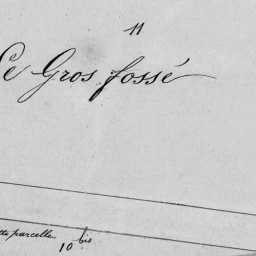 11
Le Gros fossé
parcelle
10 bis